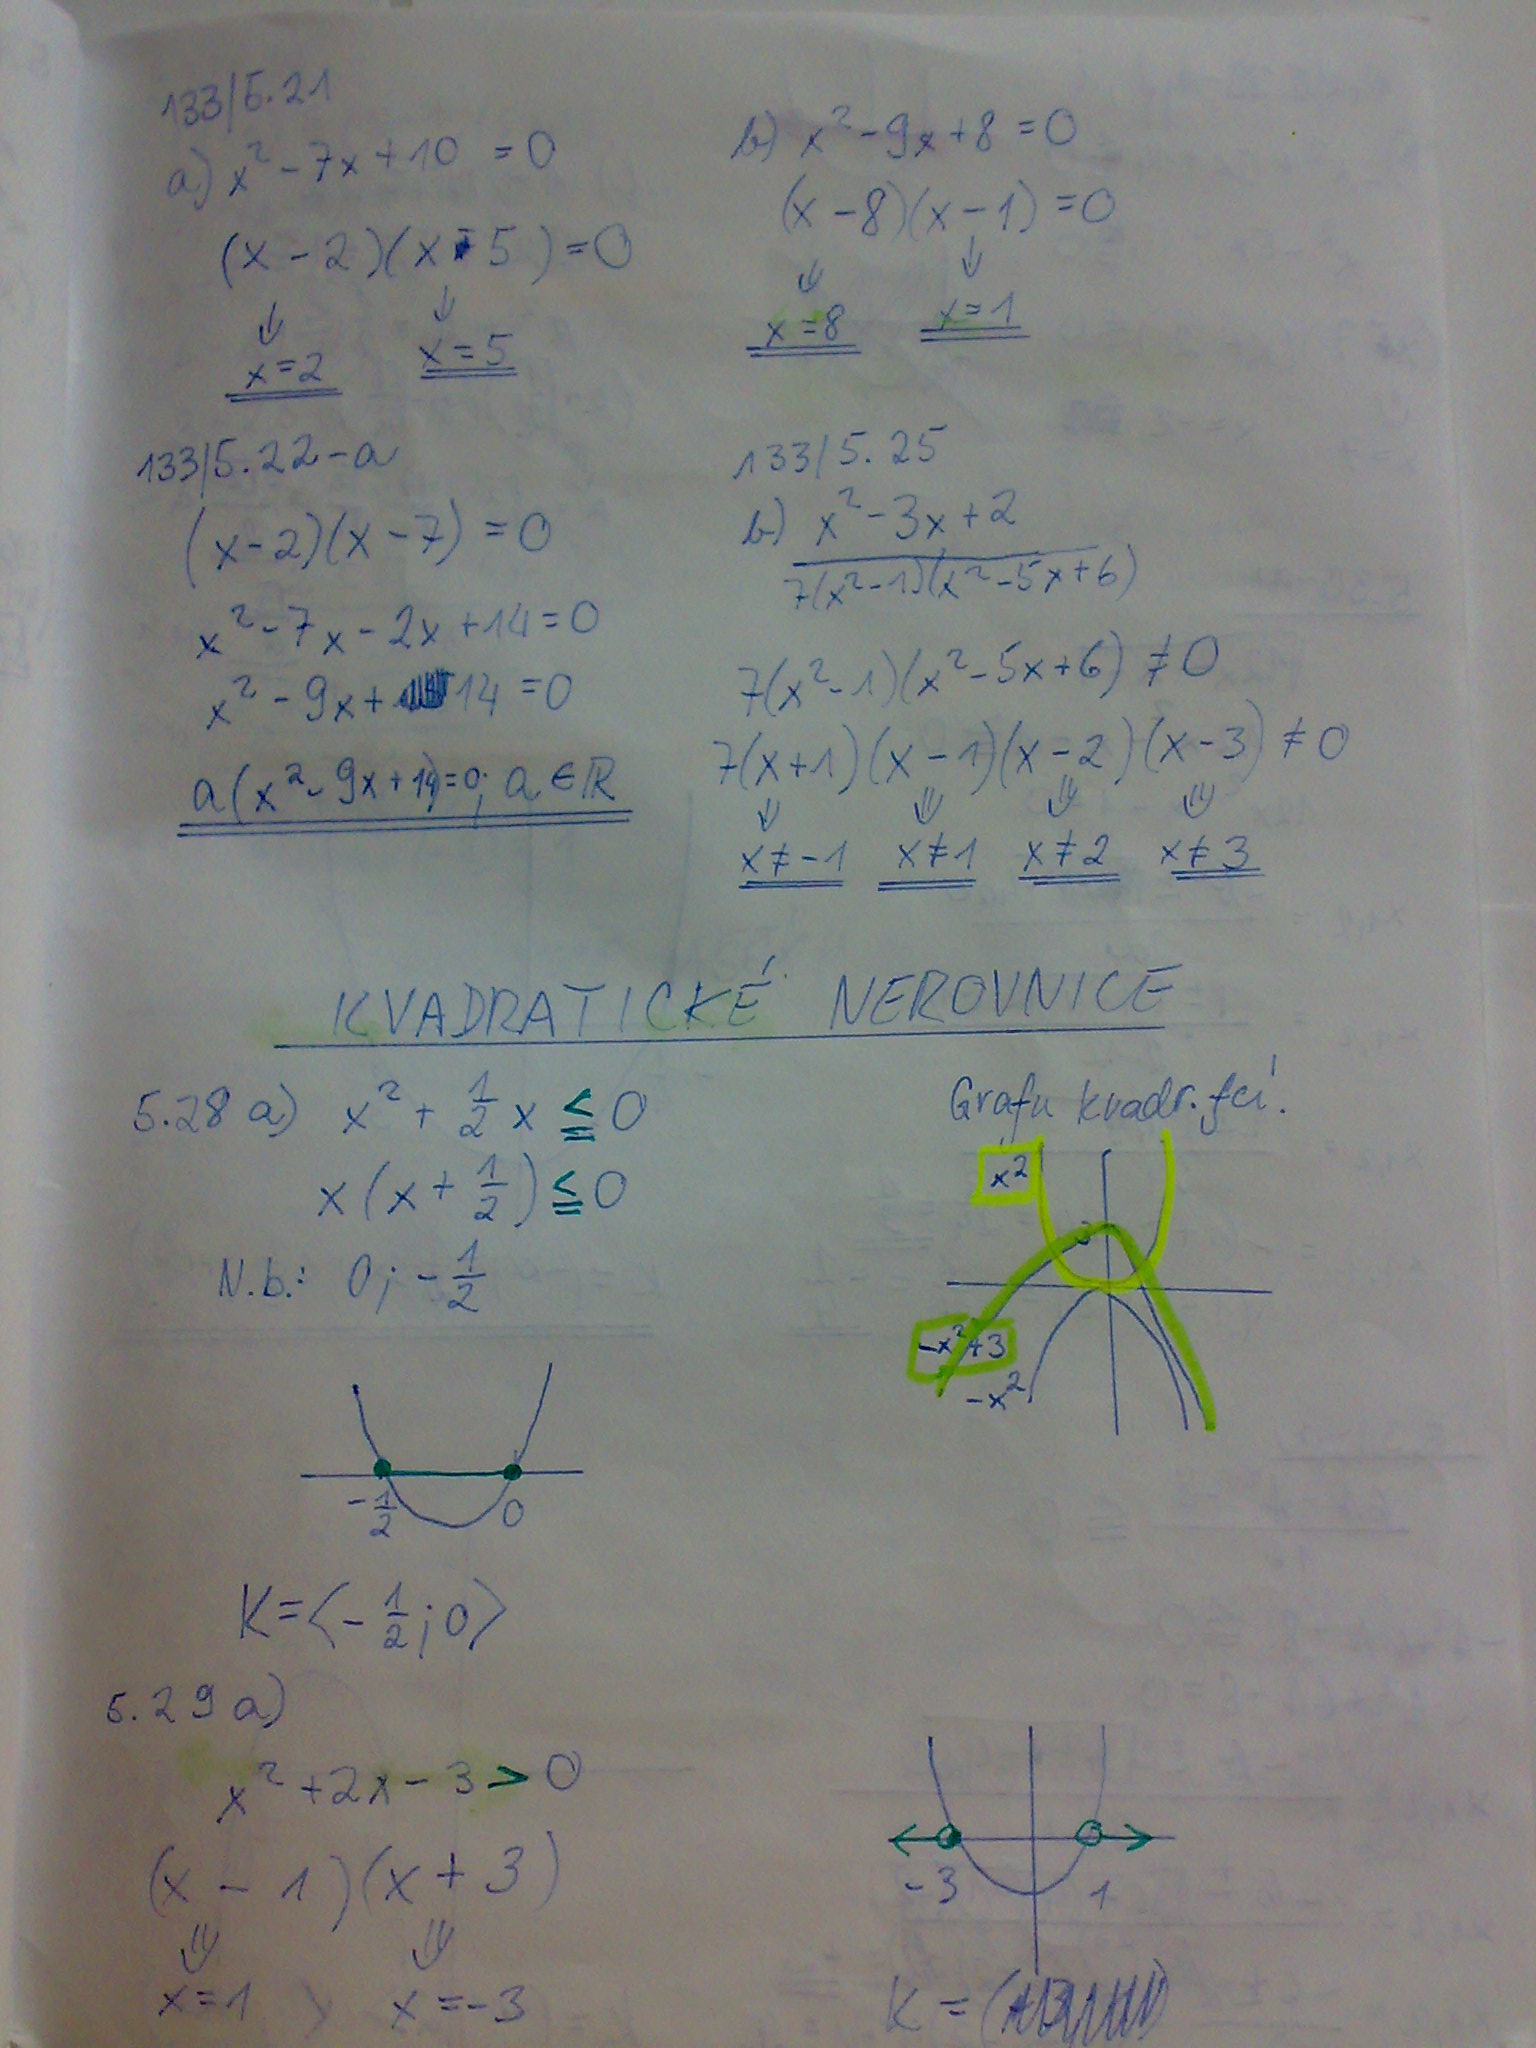 133/5.21
a) x² - 7x + 10 = 0
(x - 2)(x - 5) = 0
x = 2 x = 5
b) x² - 9x + 8 = 0
(x - 8)(x - 1) = 0
x = 8 x = 1
133/5.22-a
(x - 2)(x - 7) = 0
x² - 7x - 2x + 14 = 0
x² - 9x + 14 = 0
a(x² - 9x + 14) = 0; a ∈ R
133/5.25
b) x² - 3x + 2
7(x² - 1)(x² - 5x + 6)
7(x² - 1)(x² - 5x + 6) ≠ 0
7(x + 1)(x - 1)(x - 2)(x - 3) ≠ 0
x ≠ -1 x ≠ 1 x ≠ 2 x ≠ 3
KVADRATICKÉ NEROVNICE
5.28 a) x² + 1/2 x ≦ 0
x(x + 1/2) ≦ 0
N.b.: 0; -1/2
-1/2 0
K = ⟨-1/2; 0⟩
Grafu kvadr. fcí.
x²
3
-x²+3
-x²
5.29 a)
x² + 2x - 3 > 0
(x - 1)(x + 3)
x = 1 x = -3
-3 1
K = (